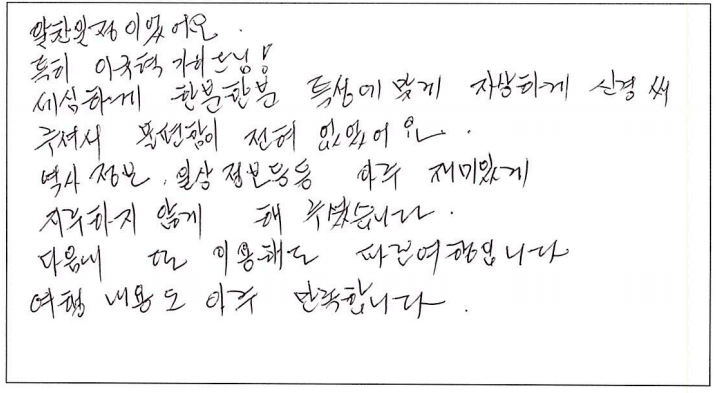 알찬일정이었어요.
특히 이국혁 가이드님!
세심하게 한분한분 특성에 맞게 자상하게 신경써
주셔서 불편함이 전혀 없었어요.
역사 정보, 일상 정보등등 아주 재미있게
지루하지 않게 해 주셨습니다.
다음에 또 이용해도 여행입니다
여행 내용도 아주 만족합니다.